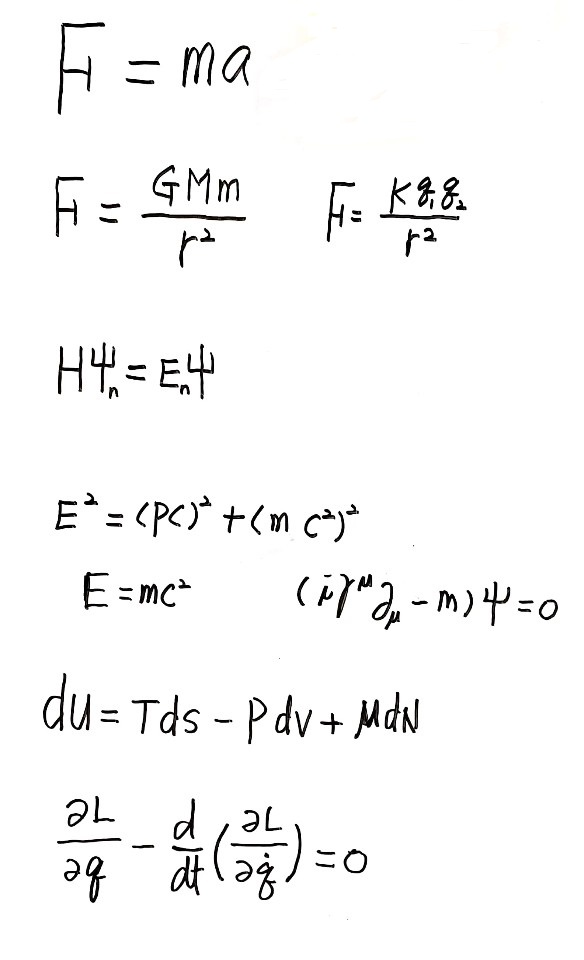 F = ma
F = GMm/r²    F = Kq₁q₂/r²
HΨₙ = EₙΨ
E² = (PC)² + (m c²)²
E = mc²    (iγ^μ ∂_μ − m)Ψ = 0
du = Tds − Pdv + μdN
∂L/∂q − d/dt(∂L/∂q̇) = 0